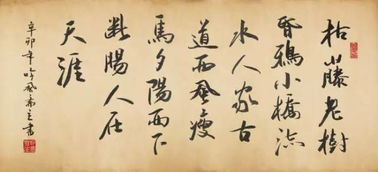 枯藤老樹
昏鴉小橋流
水人家古
道西風瘦
馬夕陽西下
斷腸人在
天涯
辛卯年吟風齋主書